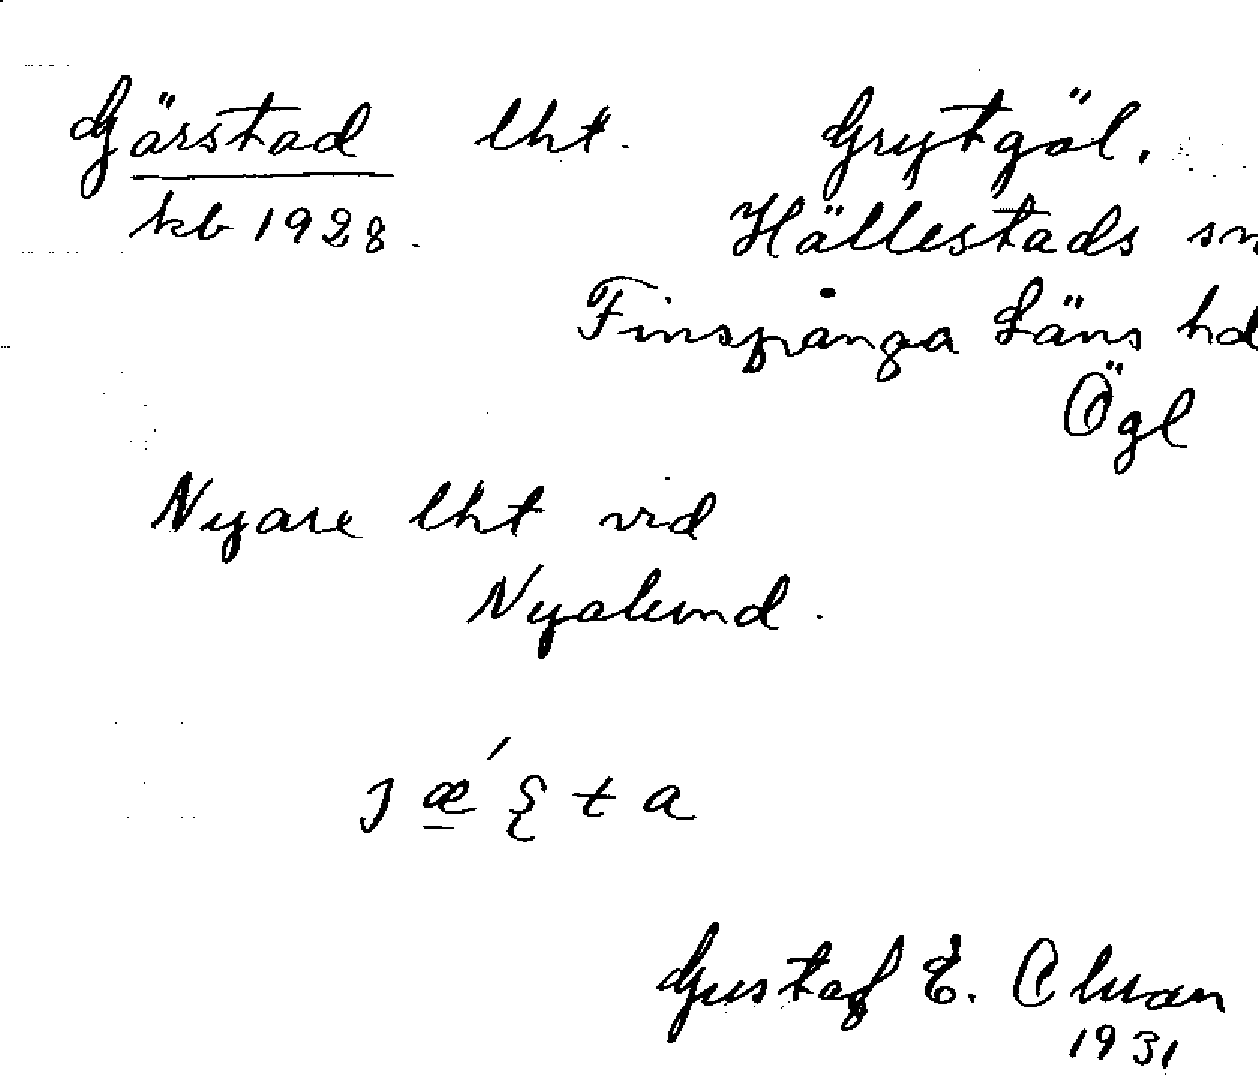 Gärstad lht. Grytgöl.
kb 1928. Hällestads sn
Finspånga Läns hd
Ögl
Nyare lht vid
Nyalund.
Gustaf E.
1931